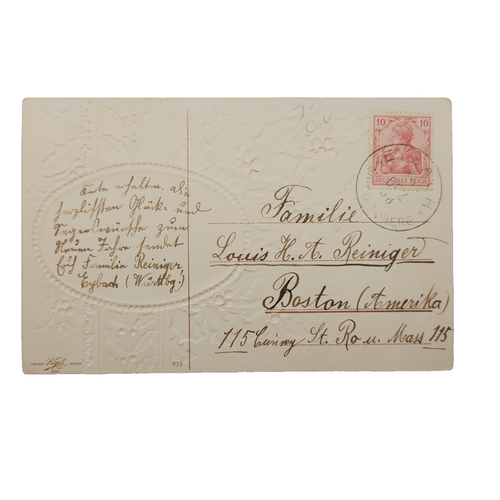 Karte erhalten, die
herzlichsten Glück- und
Segenswünsche zum
Neuen Jahre sendet
Familie Reiniger,
Eybach (Württbg.)
10 10
DEUTSCHES REICH
Familie
Louis H. A. Reiniger
Boston (Amerika)
115 St. Ro u. Mass 115
931